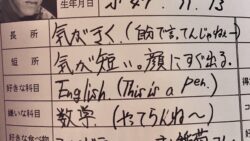 生年月日
長所 気がきく。(自分で言うてんじゃねー)
短所 気が短い。顔にすぐ出る。
好きな科目 English. (This is a pen.)
嫌いな科目 数学 (やってらんね〜)
好きな食べ物